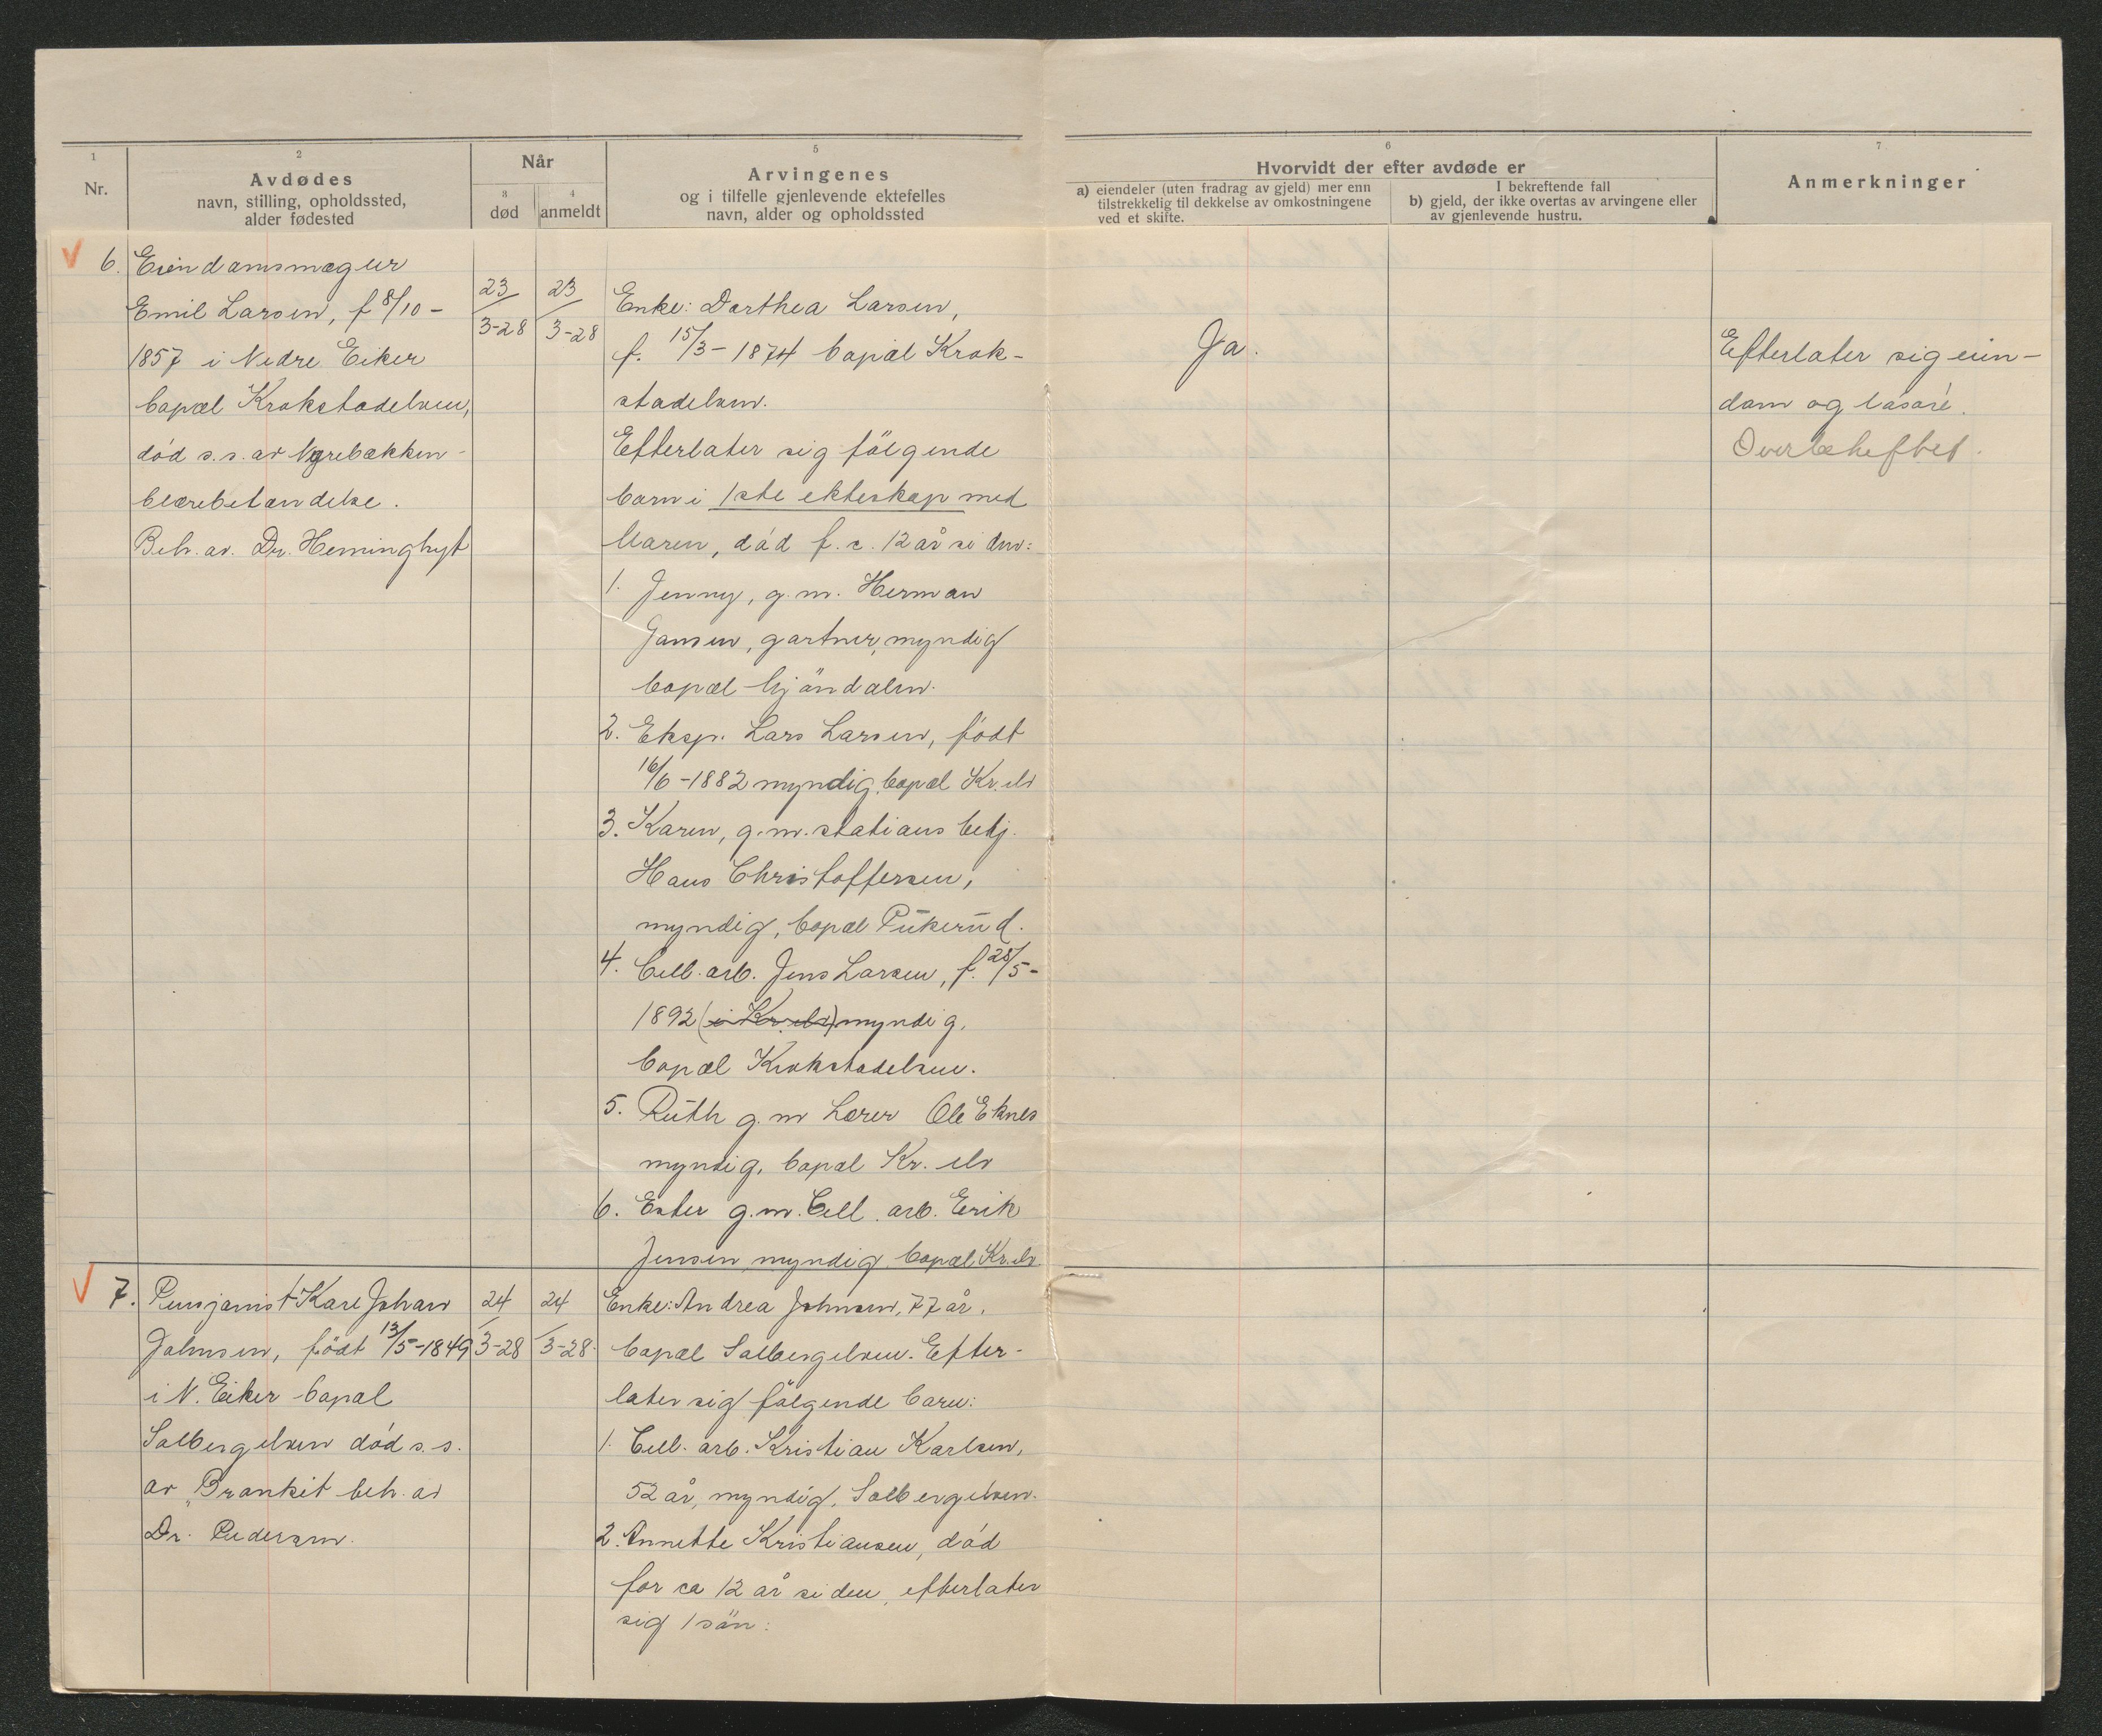 1
Nr.
2
Avdødes
navn, stilling, opholdssted,
alder fødested
Når
3
død
4
anmeldt
5
Arvingenes
og i tilfelle gjenlevende ektefelles
navn, alder og opholdssted
6
Hvorvidt der efter avdøde er
a) eiendeler (uten fradrag av gjeld) mer enn
tilstrekkelig til dekkelse av omkostningene
ved et skifte.
I bekreftende fall
b) gjeld, der ikke overtas av arvingene eller
av gjenlevende hustru.
7
Anmerkninger
6. Eiendomsmægler
Emil Larsen, f 8/10-
1857 i Nedre Eiker
bopæl Krokstadelven,
død s.s. av Nyrebækken-
blærebetændelse.
Beh. av. Dr.
23/3-28
23/3-28
Enke: Dorthea Larsen,
f. 15/3-1874 bopæl Krok-
stadelven.
Efterlater sig følgende
barn i 1ste ekteskap med
Maren, død f. c. 12 år siden:
1. Jenny, g.m. Herman
Jansen, gartner, myndig
bopæl Mjøndalen.
2. Eksp. Lars Larsen, født
16/6-1882 myndig, bopæl Kr. elv
3. Karen, g.m. stations betj.
Hans Christoffersen,
myndig, bopæl Pukerud.
4. Cell. arb. Jens Larsen, f. 28/5-
1892 (i Kr. elv) myndig,
bopæl Krokstadelven.
5. Ruth g.m Lærer Ole Eknes
myndig, bopæl Kr. elv
6. Ester g.m. Cell. arb. Erik
Jensen myndig bopæl Kr. elv.
Ja.
Efterlater sig eien-
dom og løsøre.
Overbeheftet.
7. Pensjonist Karl Johan
Johnsen, født 13/5-1849
i N. Eiker bopæl
Solbergelven død s.s.
av "Bronkit beh. av
Dr. Pedersen.
24/3-28
24/3-28.
Enke: Andrea Johnsen, 77 år,
bopæl Solbergelven. Efter-
later sig følgende barn:
1. Cell. arb. Kristian Karlsen,
52 år, myndig, Solbergelven.
2. Annette Kristiansen, død
for ca 12 år siden, efterlater
sig 1 søn: